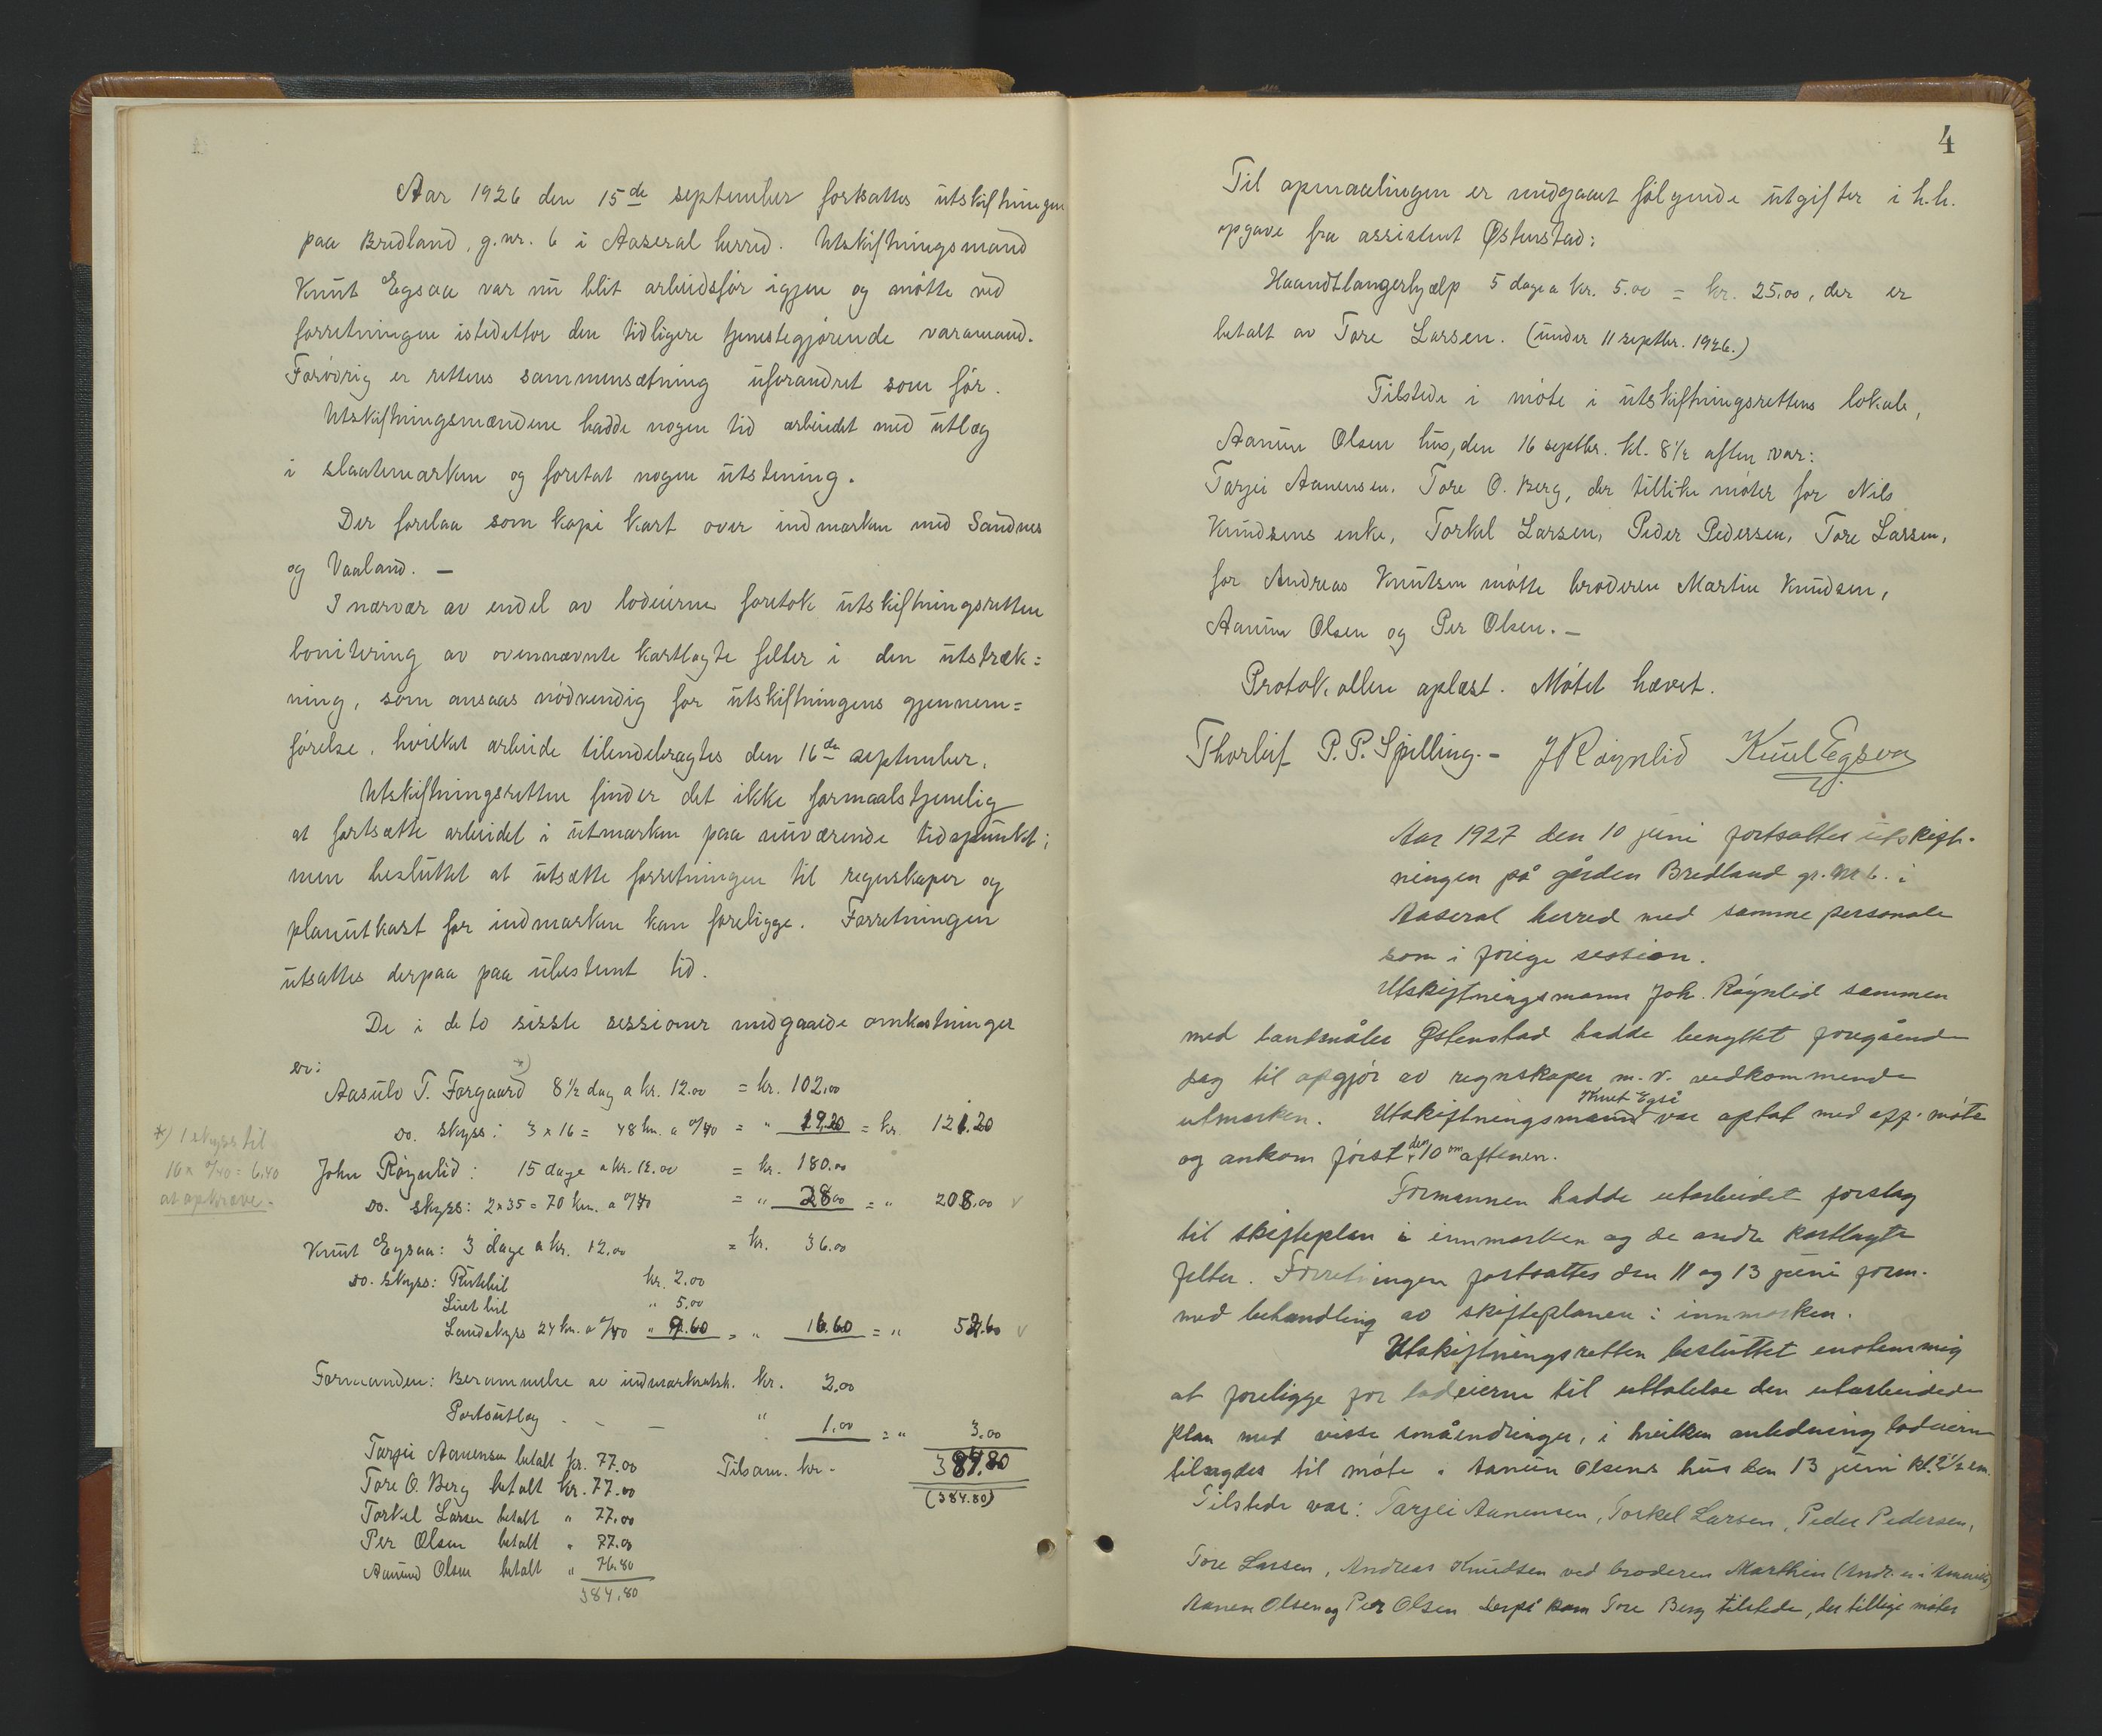 Aar 1926 den 15de september fortsattes utskiftningen
paa Bredland, g.nr. 6 i Aaseral herred. Utskiftningsmand
Knut Egsaa var nu blit arbeidsfør igjen og møtte ved
forretningen istedetfor den tidligere tjenestegjørende varamand.
Forøvrig er rettens sammensætning uforandret som før.
Utskiftningsmændene hadde nogen tid arbeidet med utlæg
i slaattemarken og foretat nogen utstening.
Der forelaa som kopi kart over indmarken med Sandnes
og Vaaland. —
I nærvær av endel av lodeierne foretok utskiftningsretten
bonitering av ovennævnte kartlagte felter i den utstræk=
ning, som ansaaes nødvendig for utskiftningens gjennem=
førelse, hvilket arbeide tilendebragtes den 16de september.
Utskiftningsretten finder det ikke formaalstjenelig
at fortsætte arbeidet i utmarken paa nuværende tidspunkt;
men besluttet at utsætte forretningen til regnskaper og
planutkast for indmarken kan foreligge. Forretningen
utsattes derpaa paa ubestemt tid.
De i de to sisste sessioner medgaaede omkostninger
er:
Aasulv T. Forgaard *) 8½ dag a kr. 12.00 = kr. 102.00
Do. skyss: 3 x 16 = 48 km. a 0/40 = " 19.20 = kr. 121.20
*) 1 skyss til
16 x 0/40 = 6.40
at opkræve.
John Røynlid: 15 dage a kr. 12.00 = kr. 180.00
Do. skyss: 2 x 35 = 70 km. a 0/40 = " 28.00 = " 208.00 v
Knut Egsaa: 3 dage a kr. 12.00 = kr. 36.00
Do. skyss: Rutebil kr. 2.00
Leiet bil " 5.00
Landskyss 24 km. a 0/40 " 9.60 = " 16.60 = " 52.60 v
Formanden: Berammelse av indmarksutsk. kr. 2.00
Portoutlæg - - — " 1.00 = " 3.00
Tilsam. kr. - 384.80
(384.80)
Tarjei Aanensen betalt kr. 77.00
Tore O. Berg betalt kr. 77.00
Torkel Larsen betalt " 77.00
Per Olsen betalt " 77.00
Aanund Olsen betalt " 76.80
384.80
4
Til opmaalingen er medgaaet følgende utgifter i h.h.
opgave fra assistent Østenstad:
Haandtlangerhjælp 5 dage a kr. 5.00 = kr. 25.00, der er
betalt av Tore Larsen. (under 11 septbr. 1926.)
Tilstede i møte i utskiftningsrettens lokale,
Aanun Olsen hus, den 16 septbr. kl. 8½ aften var:
Tarjei Aanensen, Tore O. Berg, der tillike møter for Nils
Knudsens enke, Torkel Larsen, Peder Pedersen, Tore Larsen,
for Andreas Knutsen møtte broderen Martin Knudsen,
Aanun Olsen og Per Olsen. —
Protokollen oplæst. Møtet hævet.
Thorleif P. P. Spilling. - J Røynlid Knut Egsaa
Aar 1927 den 10 juni fortsattes utskift-
ningen på gården Bredland gr. nr 6. i
Aaseral herred med samme personale
som i forige session.
Utskiftningsmann Joh. Røynlid sammen
med landmåler Østenstad hadde benyttet foregående
dag til opgjør av regnskaper m. v. vedkommende
utmarken. Utskiftningsmand Knut Egså var optat med off. møte
og ankom først den 10 om aftenen.
Formannen hadde utarbeidet forslag
til skifteplan i innmarken og de andre kartlagte
felter. Forretningen fortsattes den 11 og 13 juni form.
med behandling av skifteplanen i innmarken.
Utskiftningsretten besluttet enstemmig
at foreligge for lodeierne til uttalelse den utarbeidede
plan med visse småendringer, i hvilken anledning lodeierne
tilsagdes til møte i Aanun Olsens hus den 13 juni kl. 2½ em.
Tilstede var: Tarjei Aanensen, Torkel Larsen, Peder Pedersen,
Tore Larsen, Andreas Knudsen ved broderen Marthin (Andr. er i Amerika)
Aanen Olsen og Per Olsen. Derpå kom Tore Berg tilstede, der tillige møter